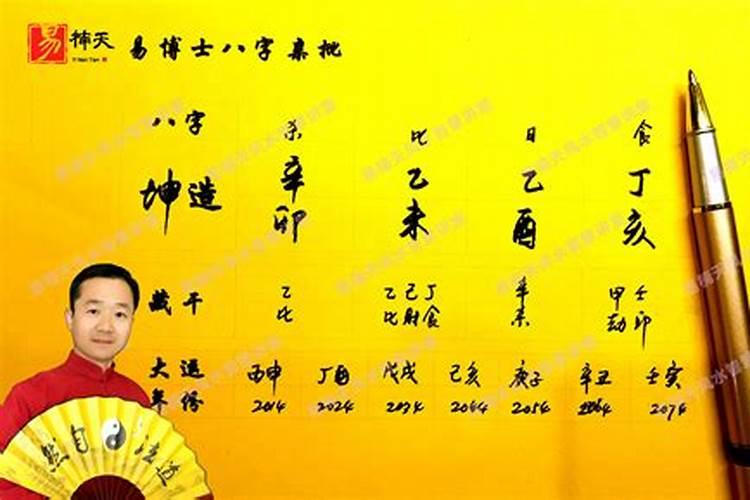 易 楠天 易博士八字集批
八字 杀 比 日 食
坤造 辛 乙 乙 丁
卯 未 酉 亥
藏干 乙 乙己丁 辛 甲壬
比 比财食 杀 劫印
大运 丙申 丁酉 戊戌 己亥 庚子 辛丑 壬寅
年份 2014 2024 2034 2044 2054 2064 2074